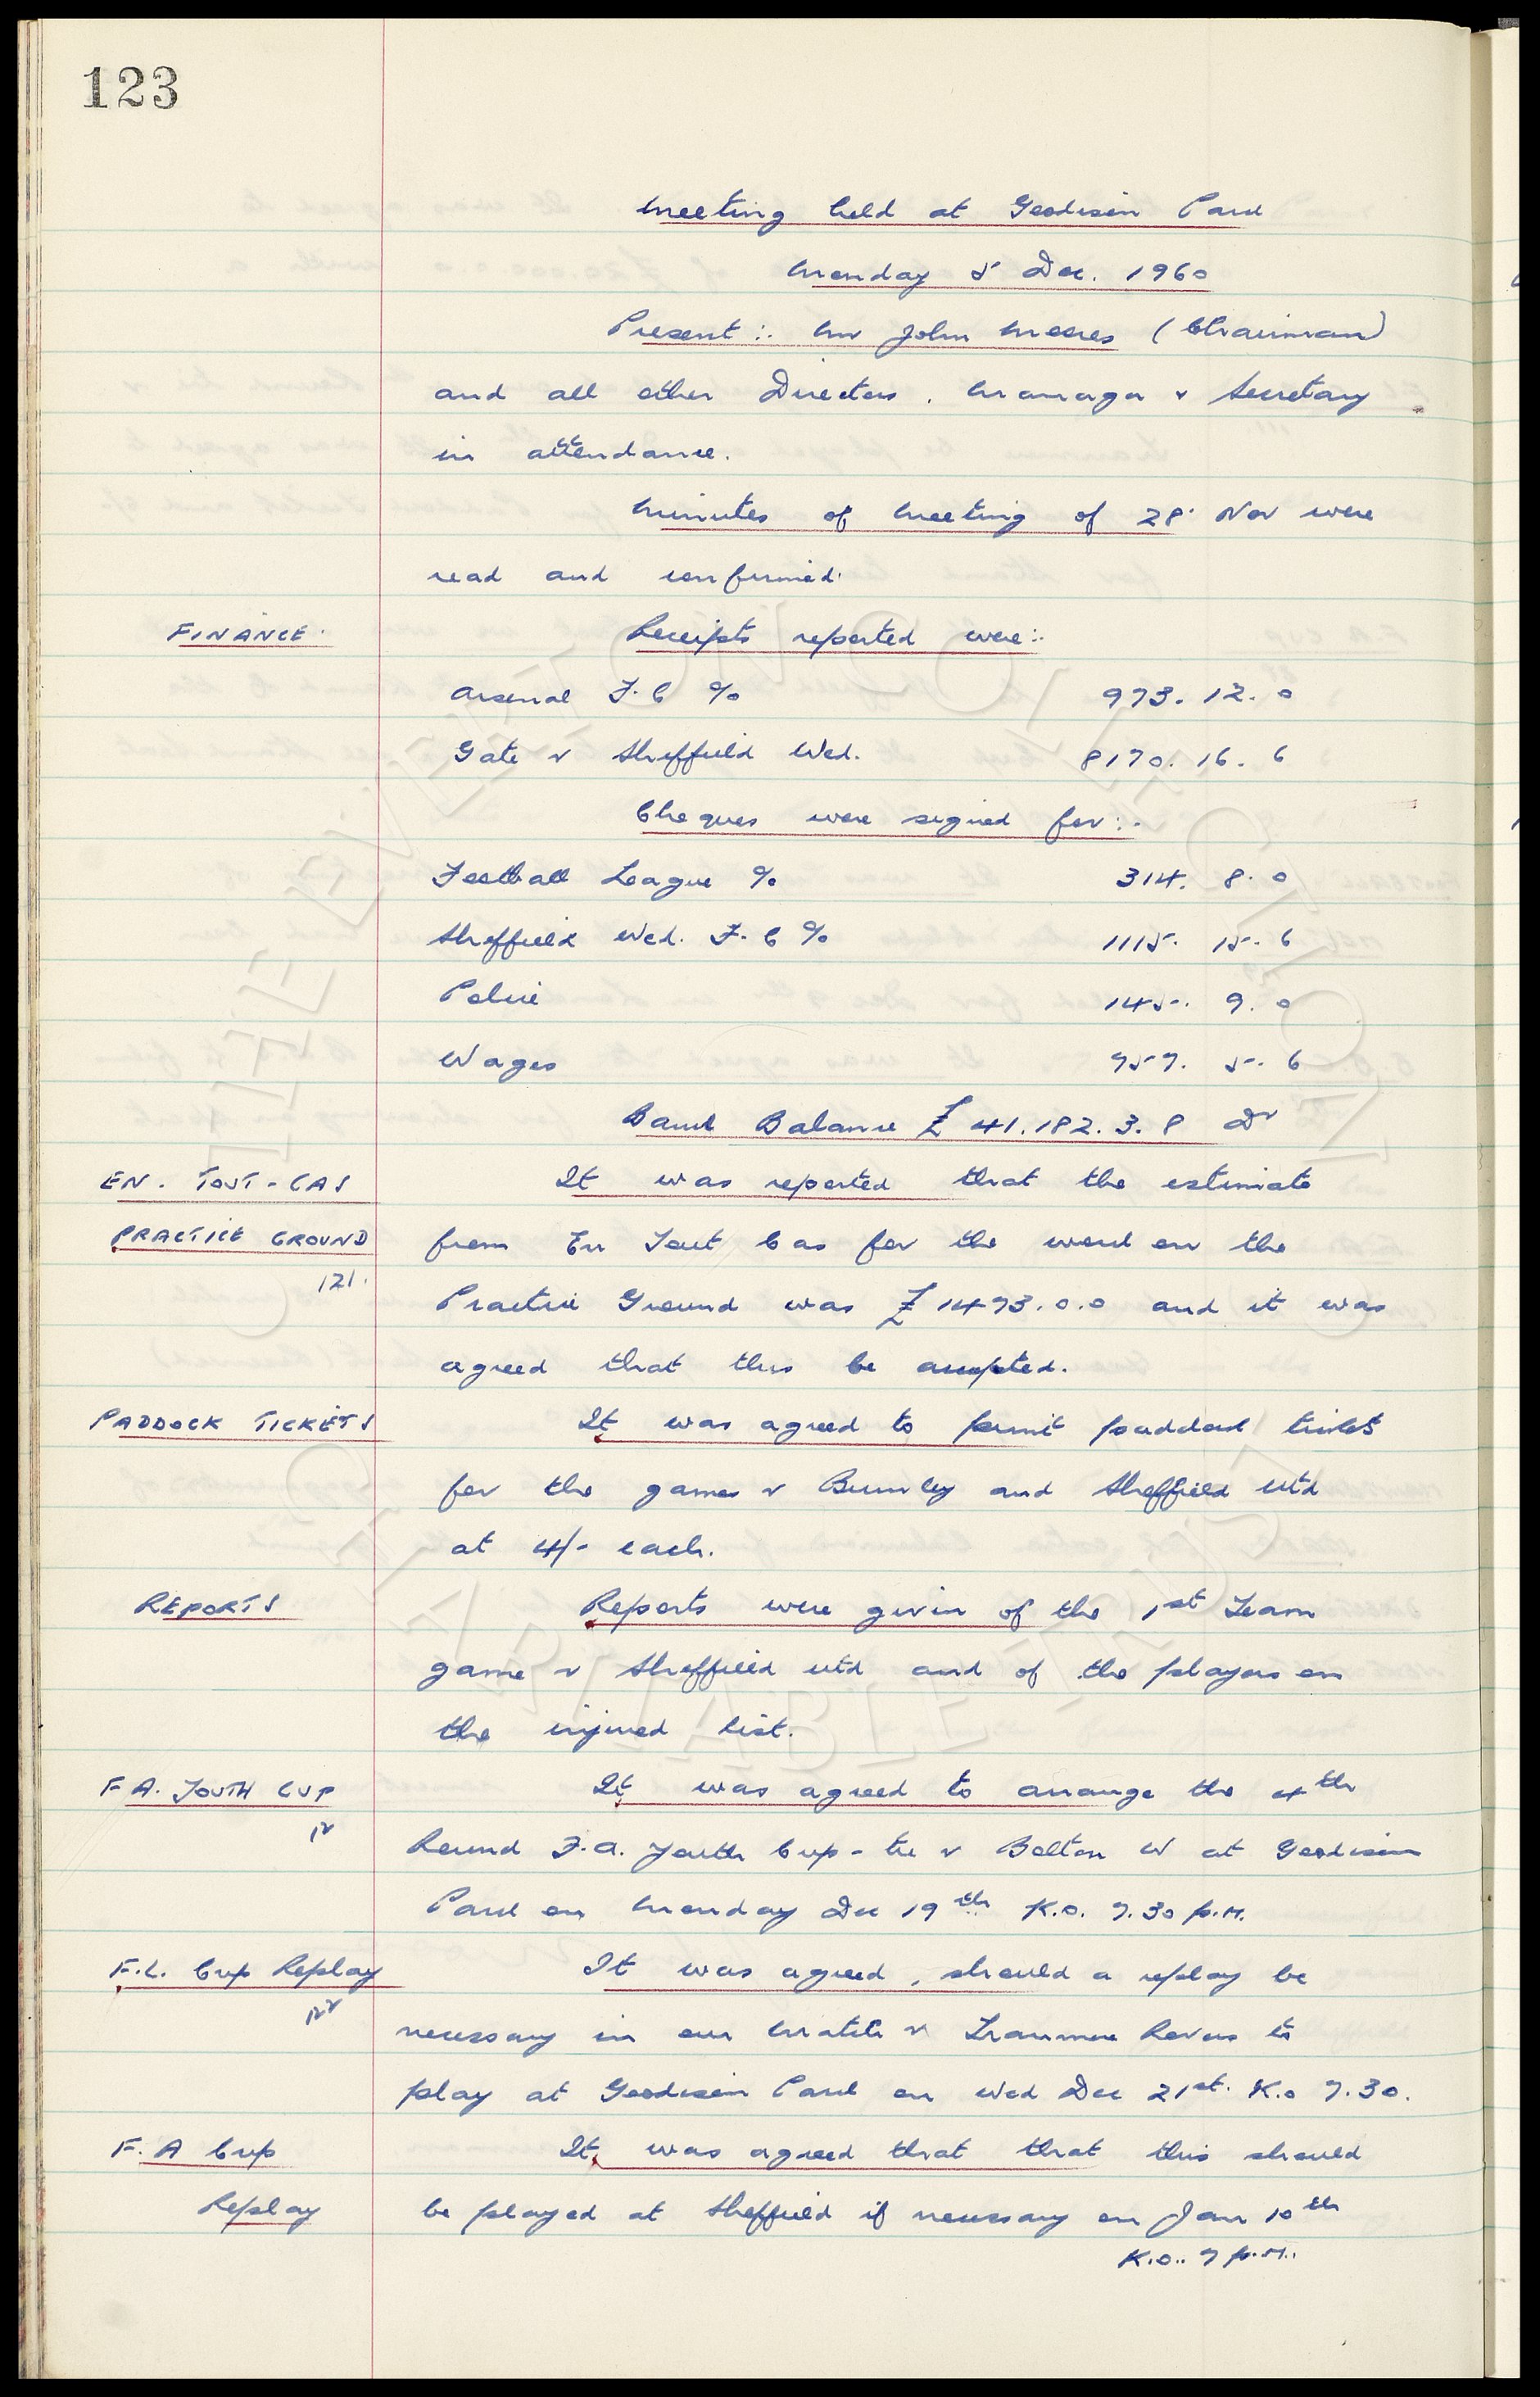 123
Meeting held at Goodison Park
Monday 5 Dec. 1960
Present :. Mr John Moores (Chairman)
and all other Directors. Manager & Secretary
in attendance.
Minutes of Meeting of 28. Nov were
read and confirmed.
FINANCE. Receipts reported were:.
Arsenal F.C % 973. 12. 0
Gate v Sheffield Wed. 8170. 16. 6
Cheques were signed for:-
Football League % 314. 8. 0
Sheffield Wed. F.C % 1115. 15. 6
Police 145. 9. 0
Wages 757. 5. 6
Bank Balance £41.182.3.8 Dr
EN. TOUT-CAS It was reported that the estimate
PRACTICE GROUND from En Tout Cas for the work on the
121.
Practice Ground was £1473.0.0 and it was
agreed that this be accepted.
PADDOCK TICKETS It was agreed to permit paddock tickets
for the games v Burnley and Sheffield Utd
at 4/- each.
REPORTS Reports were given of the 1st Team
game v Sheffield Utd and of the players on
the injured list.
F.A. YOUTH CUP It was agreed to arrange the 4th
Round F.A. Youth Cup-tie v Bolton W at Goodison
Park on Monday Dec 19th K.O. 7.30 p.m.
F.L. Cup Replay It was agreed, should a replay be
122
necessary in our Match v Tranmere Rovers to
play at Goodison Park on Wed Dec 21st. K.o 7.30.
F.A Cup It was agreed that that this should
Replay be played at Sheffield if necessary on Jan 10th
K.O.. 7 p.m..